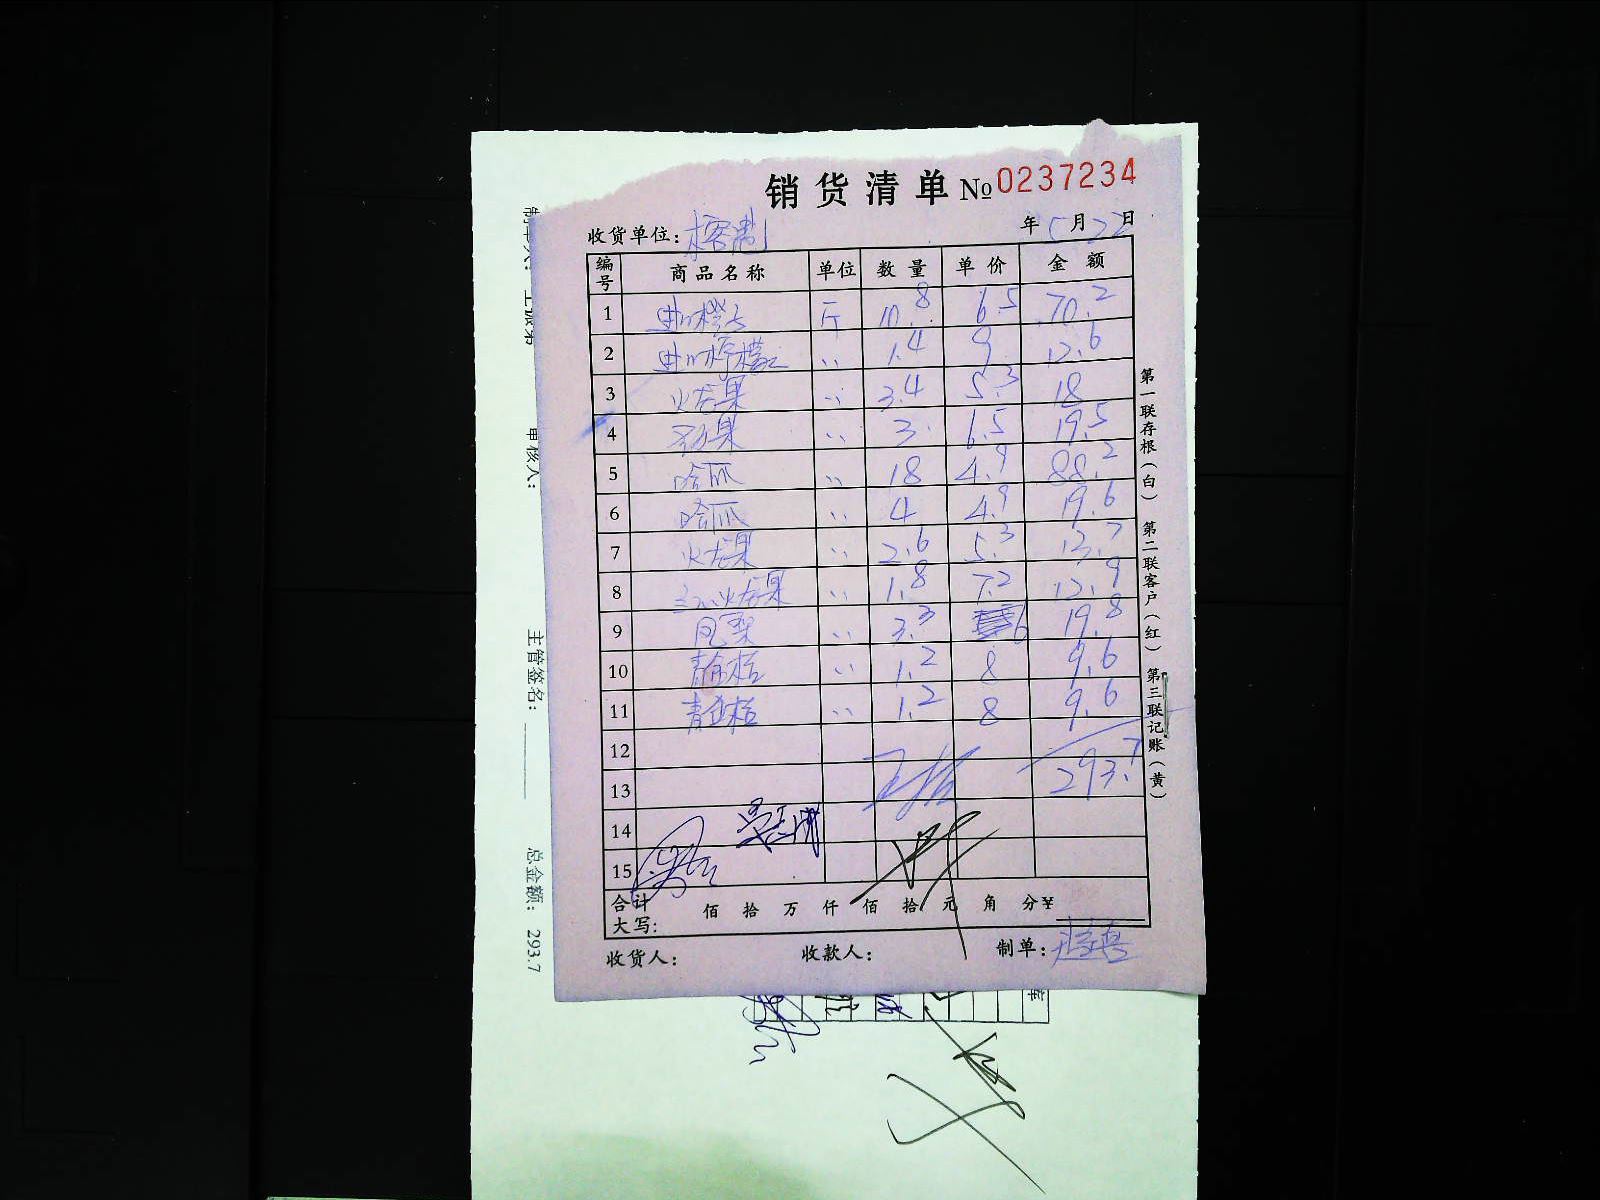 销货清单 №0237234
收货单位: 年 5 月 22 日
编号 商品名称 单位 数量 单价 金额
1 进口橙子 斤 10.8 6.5 70.2
2 进口柠檬 〃 1.4 9 12.6
3 火龙果 〃 3.4 5.3 18
4 果 〃 3 6.5 19.5
5 哈瓜 〃 18 4.9 88.2
6 哈瓜 〃 4 4.9 19.6
7 火龙果 〃 2.6 5.3 13.7
8 火龙果 〃 1.8 7.2 12.9
9 凤梨 〃 3.3 6 19.8
10 青金桔 〃 1.2 8 9.6
11 青金桔 〃 1.2 8 9.6
12
13 293.7
14
15
合计大写: 佰 拾 万 仟 佰 拾 元 角 分 ¥
收货人: 收款人: 制单:
第一联存根(白) 第二联客户(红) 第三联记账(黄)
审核人:
主管签名:
总金额: 293.7